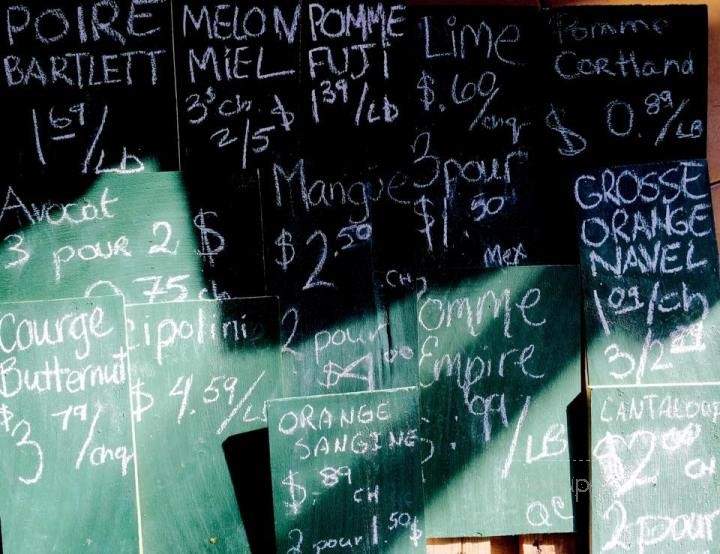 POIRE
BARTLETT
1 69/LB
MELON
MIEL
3$ ch.
2/5$
POMME
FUJI
1 39/LB
Lime
$.60/chq
3 pour
$1.50
Mex
Pomme
Cortland
$0.89/LB
Avocat
3 pour 2$
0.75 ch
Mangue
$2.50
CH
2 pour
GROSSE
ORANGE
NAVEL
1 09/ch
Courge
Butternut
$3 79/chq
cipolini
$4.59/L
ORANGE
SANGINE
$.89
CH
2 pour 1.50$
Pomme
Empire
$.99/LB
QC
CANTALOUP
$2.00
CH
2 pour